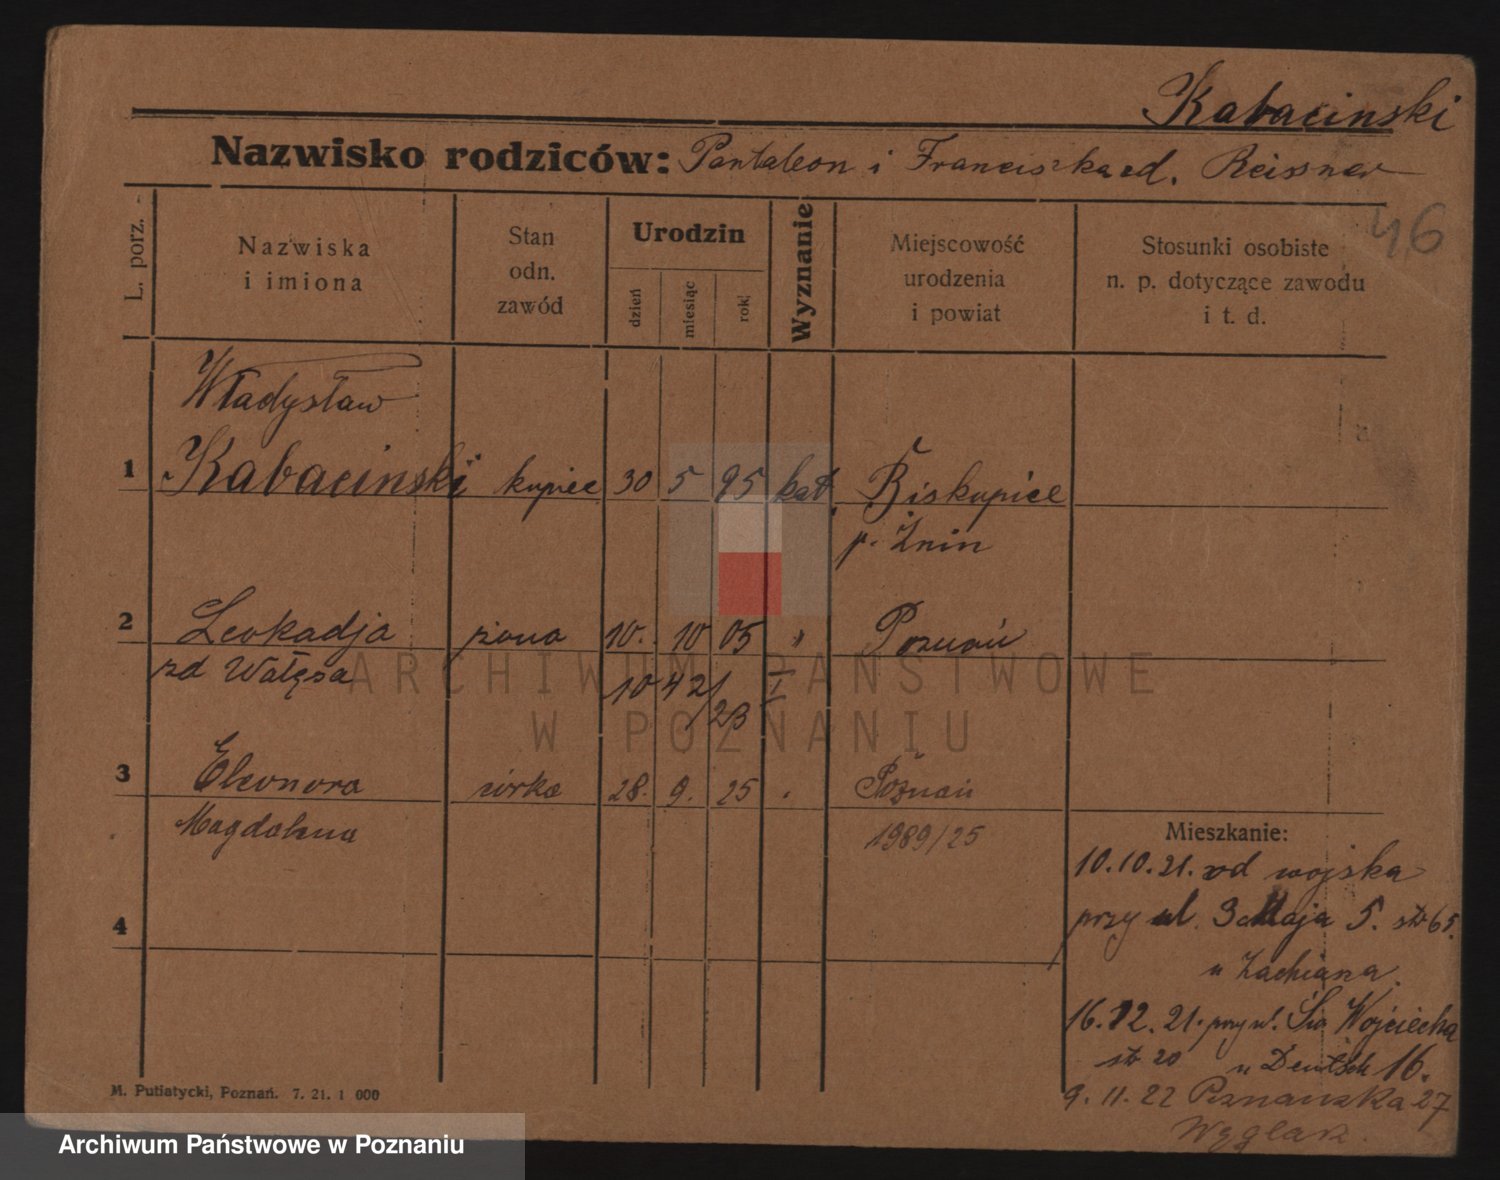 Kabacinski
Nazwisko rodziców: Pantaleon i Franciszka zd. Reissner
46
L. porz.
Nazwiska
i imiona
Stan
odn.
zawód
Urodzin
dzień
miesiąc
rok
Wyznanie
Miejscowość
urodzenia
i powiat
Stosunki osobiste
n. p. dotyczące zawodu
i t. d.
Władysław
1 Kabacinski kupiec 30 5 95 kat. Biskupice
p. Żnin
2 Leokadja żona 10. 10 05 " Poznań
zd Wałęsa 10 4 21/23 I
3 Eleonora córka 28. 9. 25 . Poznań
Magdalena 1989/25
4
Mieszkanie:
10.10.21. od wojska
przy ul. 3 Maja 5. str 65.
u Zachiana.
16.12.21. przy ul. Św Wojciecha
str 20 u Deutsch 16.
9. 11. 22 Poznanska 27
M. Putiatycki, Poznań. 7. 21. 1 000
ARCHIWUM PAŃSTWOWE
W POZNANIU
Archiwum Państwowe w Poznaniu